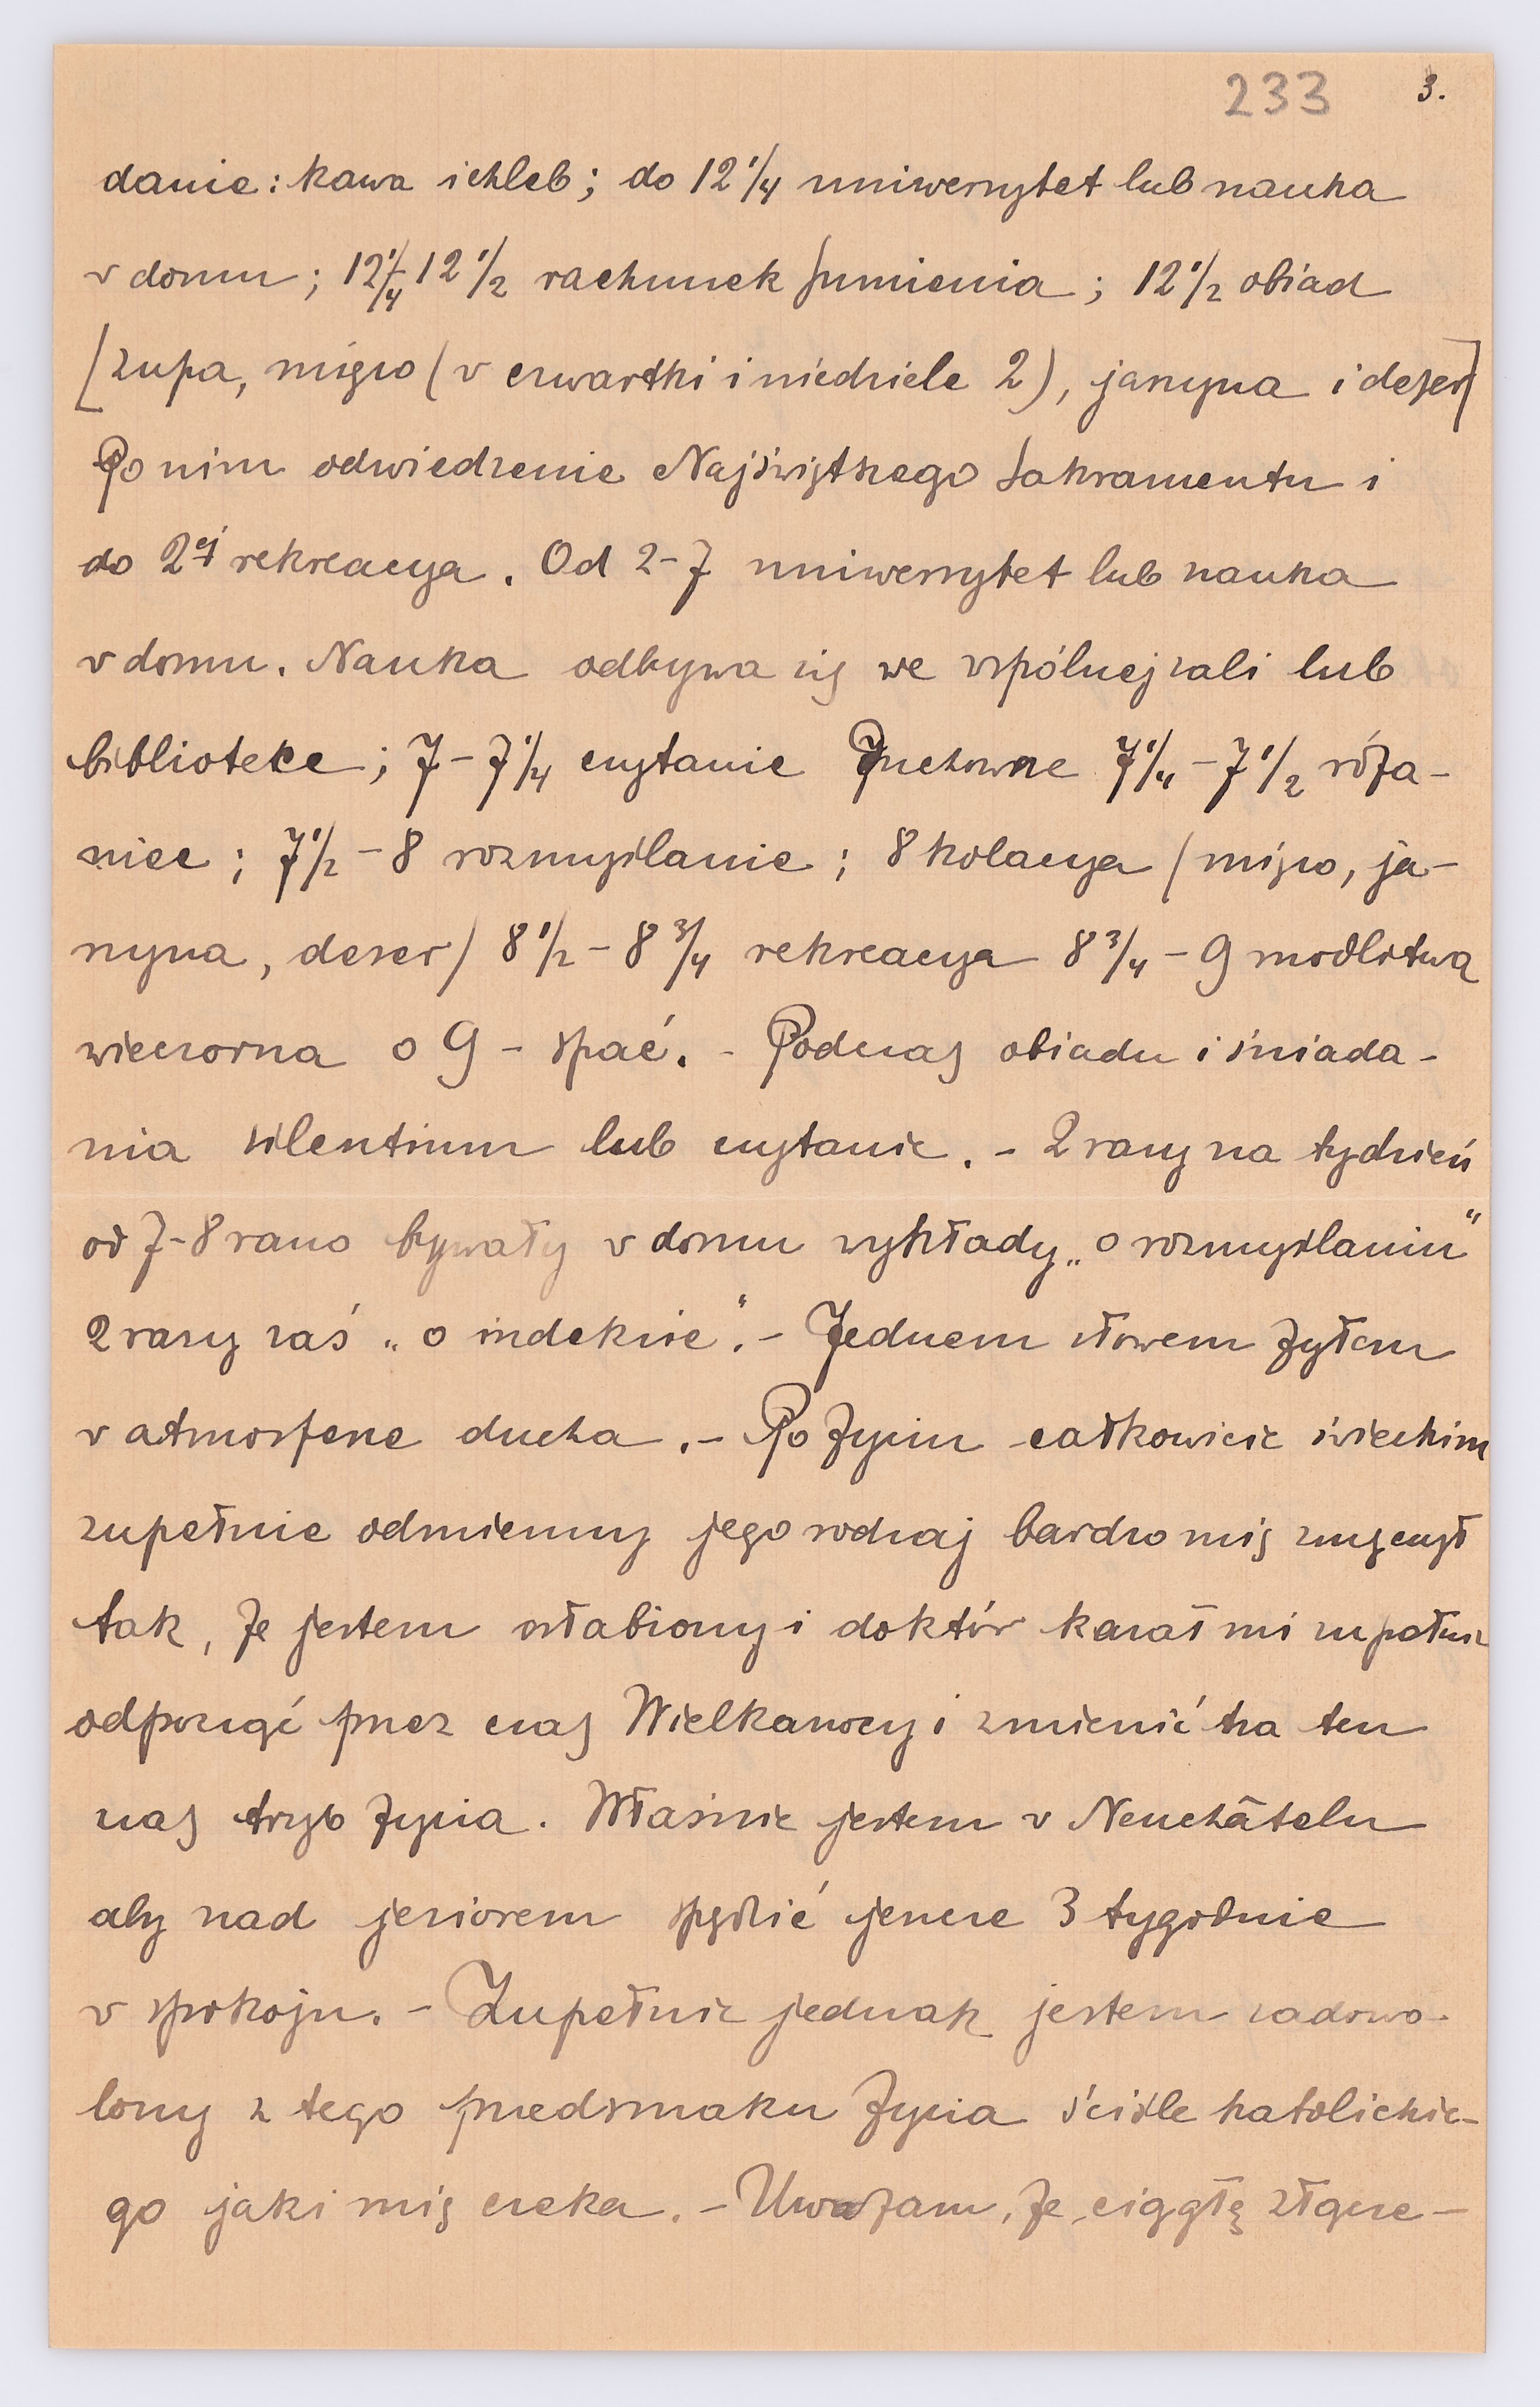 233 3.
danie: kawa i chleb; do 12 1/4 uniwersytet lub nauka
w domu; 12 1/4-12 1/2 rachunek sumienia; 12 1/2 obiad
[zupa, mięso (w czwartki i niedziele 2), jarzyna i deser]
Po nim odwiedzenie Najświętszego Sakramentu i
do 2ej rekreacya. Od 2-7 uniwersytet lub nauka
w domu. Nauka odbywa się we wspólnej sali lub
bibliotece; 7-7 1/4 czytanie Duchowne 7 1/4-7 1/2 róża-
niec; 7 1/2-8 rozmyślanie; 8 kolacya / mięso, ja-
rzyna, deser / 8 1/2-8 3/4 rekreacya 8 3/4-9 modlitwa
wieczorna o 9 - spać. - Podczas obiadu i śniada-
nia silentium lub czytanie. - 2 razy na tydzień
od 7-8 rano bywały w domu wykłady „o rozmyślaniu"
2 razy zaś „o indeksie". - Jednem słowem żyłem
w atmosferze ducha. - Po życiu całkowicie świeckim
zupełnie odmienny jego rodzaj bardzo mię zmęczył
tak, że jestem osłabiony i doktór kazał mi zupełnie
odpocząć przez czas Wielkanocy i zmienić na ten
czas tryb życia. Właśnie jestem w Neuchâtelu
aby nad jeziorem spędzić jeszcze 3 tygodnie
w spokoju. - Zupełnie jednak jestem zadowo-
lony z tego przedsmaku życia ściśle katolickie-
go jaki mię czeka. - Uważam, że ciągłę złącze-